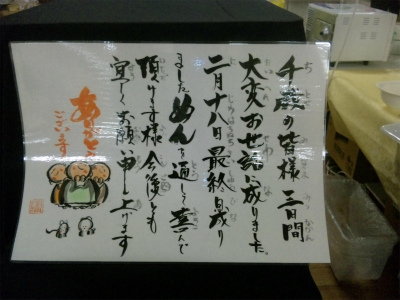 千歳の皆様 三日間
大変お世話に成りました。
二月十八日最終日と成り
ました めんを通して喜んで
頂けます様 今後とも
宜しくお願い申し上げます
ありがとう
ございます